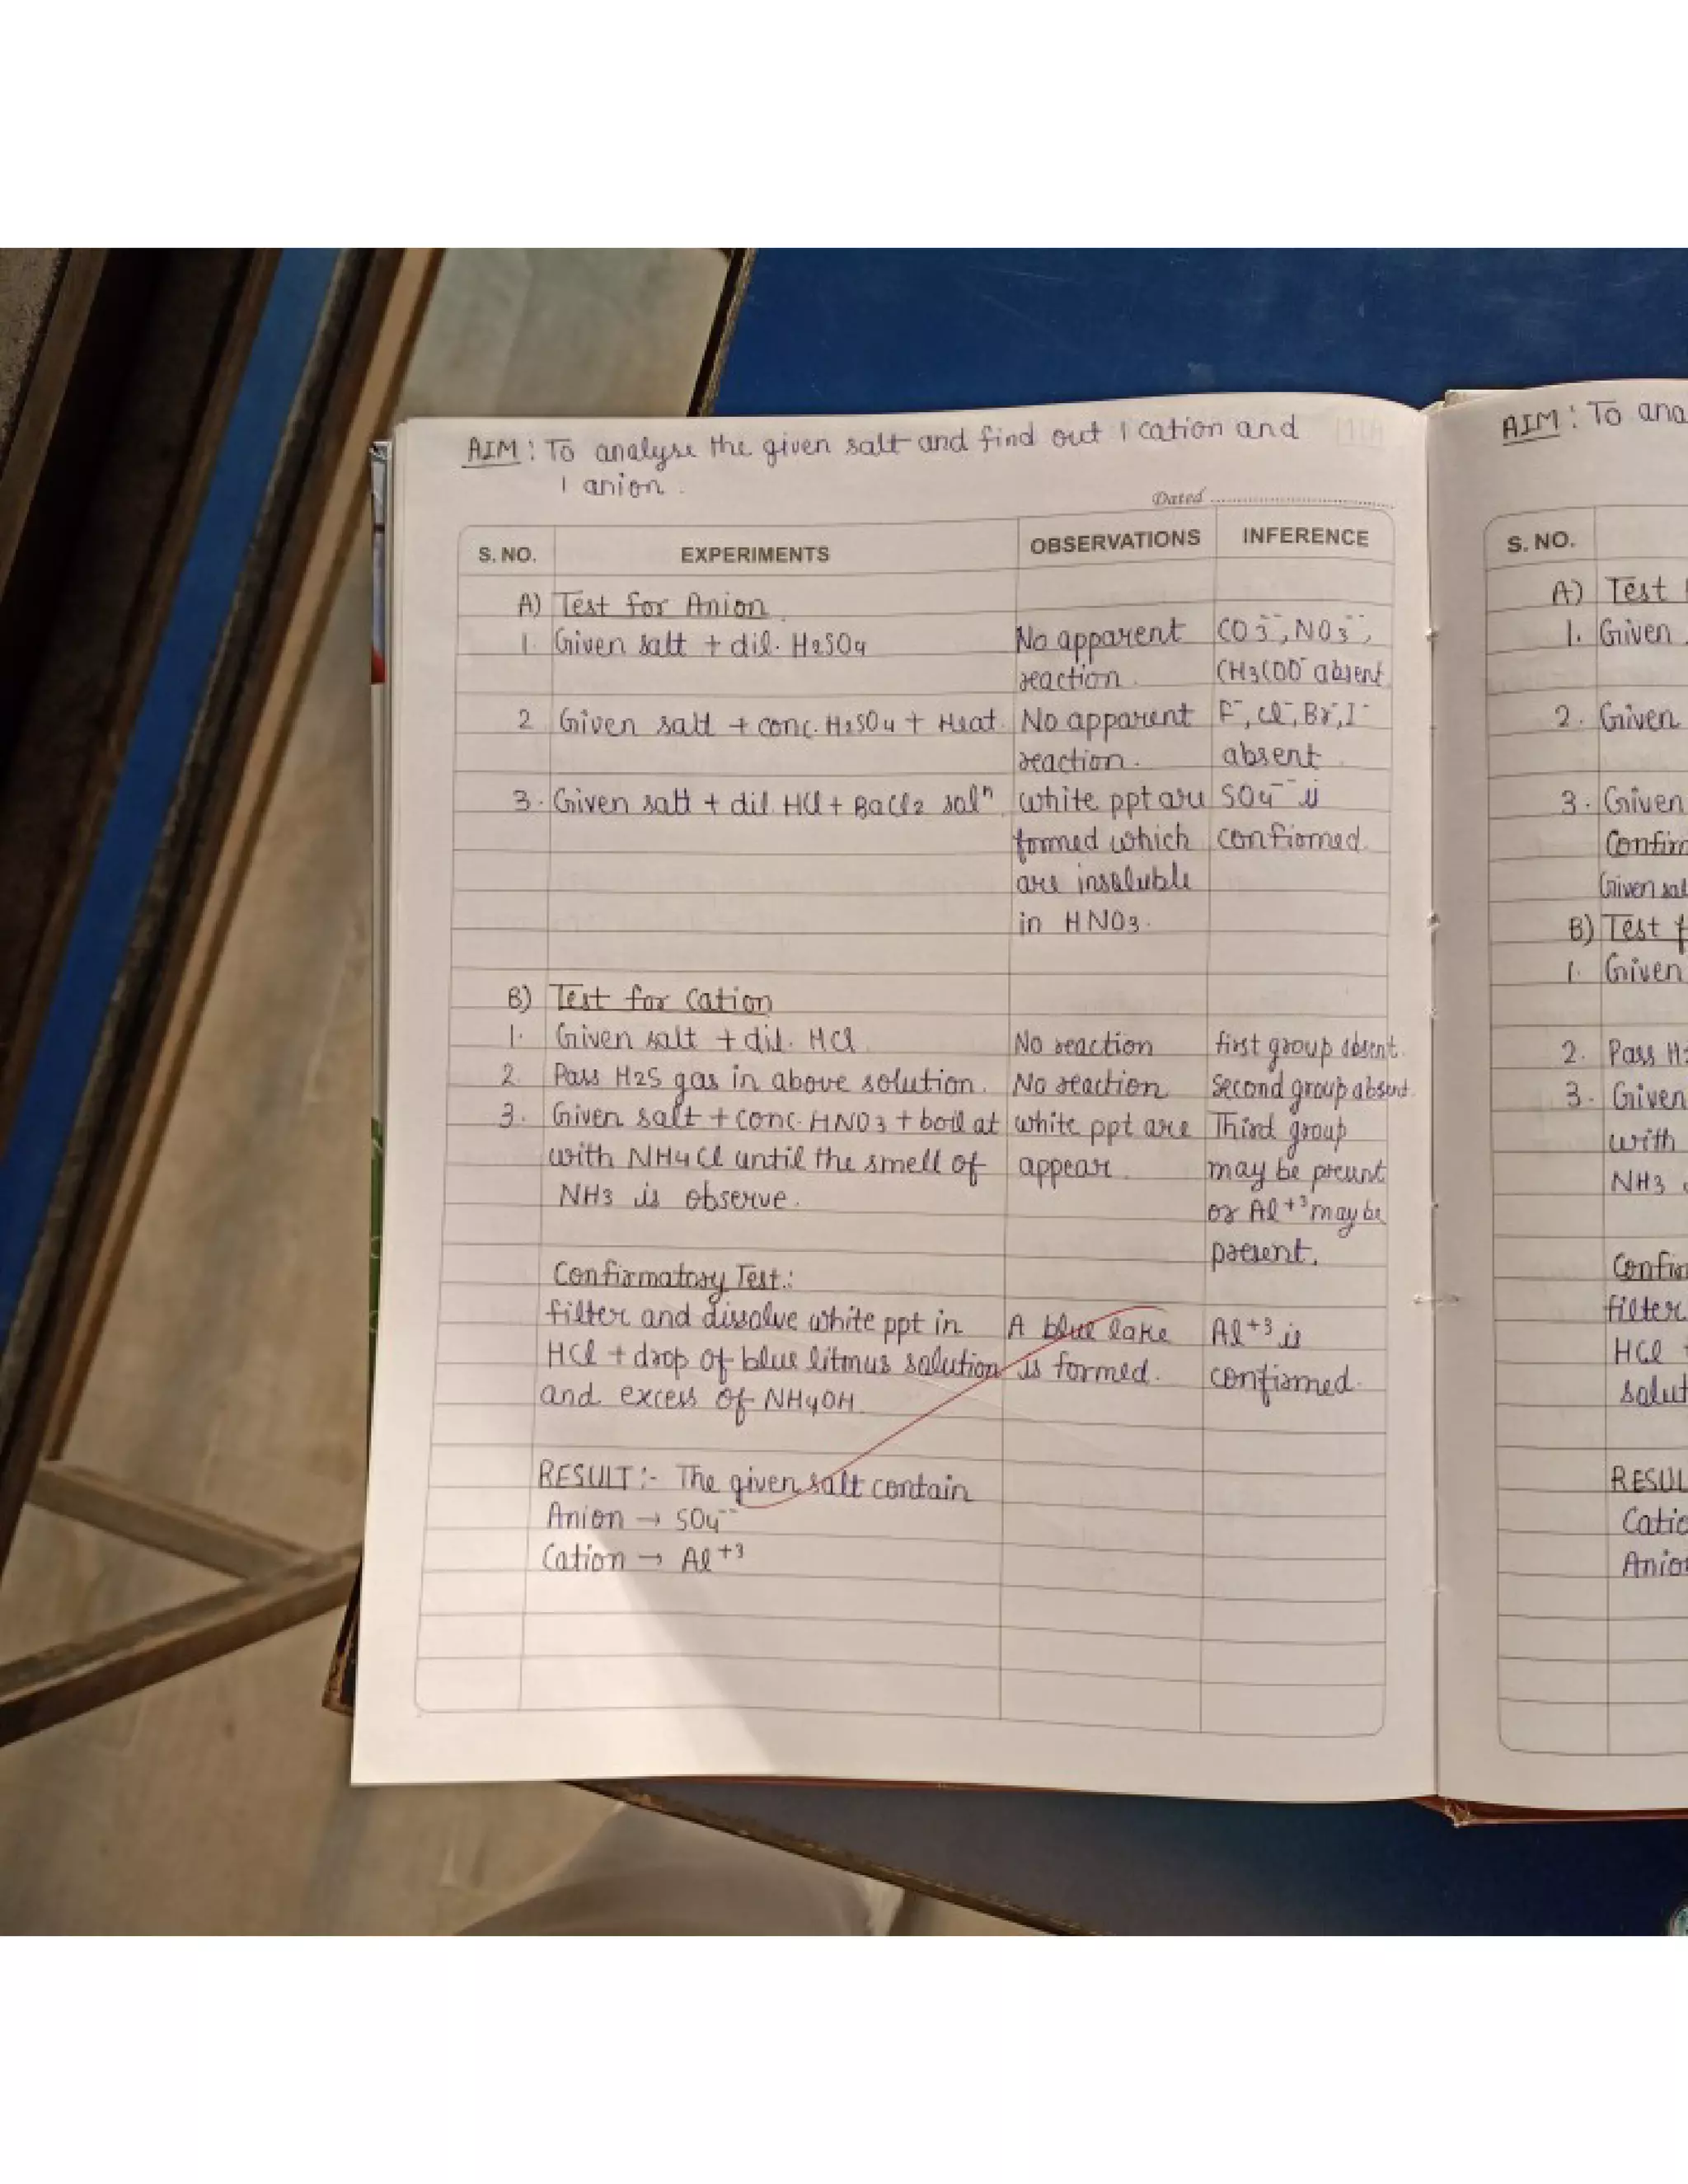 AIM : To analyse the given salt and find out 1 cation and
1 anion.
Dated
S. NO. EXPERIMENTS OBSERVATIONS INFERENCE
A) Test for Anion
1. Given salt + dil. H2SO4 No apparent CO3--, NO3--,
reaction. CH3COO- absent
2 Given salt + conc. H2SO4 + Heat. No apparent F-, Cl-, Br-, I-
reaction. absent
3. Given salt + dil. HCl + BaCl2 solⁿ. white ppt are SO4-- is
formed which confirmed.
are insoluble
in HNO3.
B) Test for Cation
1. Given salt + dil. HCl No reaction first group absent.
2. Pass H2S gas in above solution. No reaction Second group absent.
3. Given salt + conc. HNO3 + boil at white ppt are Third group
with NH4Cl until the smell of appear. may be present
NH3 is observe. or Al+3 may be
present.
Confirmatory Test:
filter and dissolve white ppt in A blue lake Al+3 is
HCl + drop of blue litmus solution is formed. confirmed.
and excess of NH4OH.
RESULT :- The given salt contain
Anion → SO4--
Cation → Al+3
AIM : To ana
S. NO.
A) Test
1. Given
2. Given
3. Given
Confirm
Given sal
B) Test f
1. Given
2. Pass H2
3. Given
with
NH3
Confir
filter
HCl +
solut
RESUL
Catio
Anion